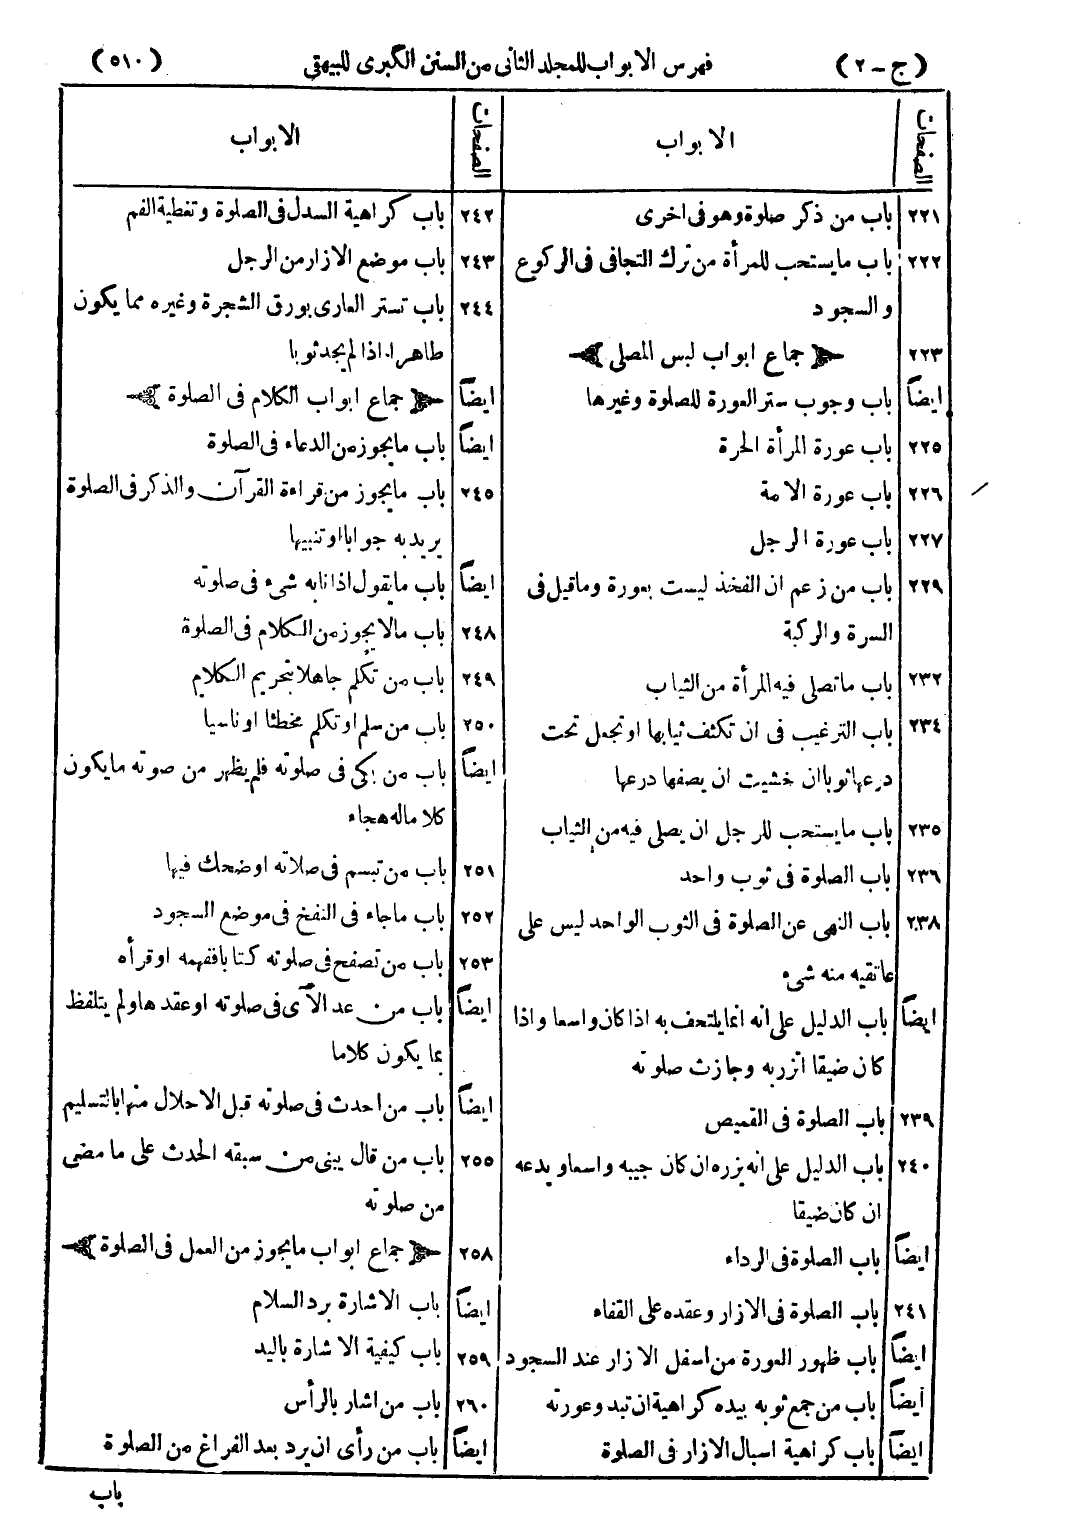 (ج-٢) فهرس الابواب للمجلد الثانى من السنن الكبرى للبيهقى (٥١٠)
الصفحات الابواب
٢٢١ باب من ذكر صلوة وهو فى اخرى
٢٢٢ باب ما يستحب للمرأة من ترك التجافى فى الركوع
والسجود
٢٢٣ جماع ابواب لبس المصلى
ايضاً باب وجوب ستر العورة للصلوة وغيرها
٢٢٥ باب عورة المرأة الحرة
٢٢٦ باب عورة الامة
٢٢٧ باب عورة الرجل
٢٢٩ باب من زعم ان الفخذ ليست بعورة وما قيل فى
السرة والركبة
٢٣٢ باب ما تصلى فيه المرأة من الثياب
٢٣٤ باب الترغيب فى ان تكثف ثيابها او تجعل تحت
درعها ثوبا ان خشيت ان يصفها درعها
٢٣٥ باب ما يستحب للرجل ان يصلى فيه من الثياب
٢٣٦ باب الصلوة فى ثوب واحد
٢٣٨ باب النهى عن الصلوة فى الثوب الواحد ليس على
عاتقيه منه شىء
ايضاً باب الدليل على انه انما يلتحف به اذا كان واسعا واذا
كان ضيقا اتزر به وجازت صلوته
٢٣٩ باب الصلوة فى القميص
٢٤٠ باب الدليل على انه يزره ان كان جيبه واسعا ويدعه
ان كان ضيقا
ايضاً باب الصلوة فى الرداء
٢٤١ باب الصلوة فى الازار وعقده على القفاء
ايضاً باب ظهور العورة من اسفل الازار عند السجود
ايضاً باب من جمع ثوبه بيده كراهية ان تبدو عورته
ايضاً باب كراهية اسبال الازار فى الصلوة
الصفحات الابواب
٢٤٢ باب كراهية السدل فى الصلوة وتغطية الفم
٢٤٣ باب موضع الازار من الرجل
٢٤٤ باب تستر العارى بورق الشجرة وغيره مما يكون
طاهرا اذا لم يجد ثوبا
ايضاً جماع ابواب الكلام فى الصلوة
ايضاً باب ما يجوز من الدعاء فى الصلوة
٢٤٥ باب ما يجوز من قراءة القرآن والذكر فى الصلوة
يريد به جوابا او تنبيها
ايضاً باب ما يقول اذا نابه شىء فى صلوته
٢٤٨ باب ما لا يجوز من الكلام فى الصلوة
٢٤٩ باب من تكلم جاهلا بتحريم الكلام
٢٥٠ باب من سلم او تكلم مخطئا او ناسيا
ايضاً باب من بكى فى صلوته فلم يظهر من صوته ما يكون
كلاما له هجاء
٢٥١ باب من تبسم فى صلاته او ضحك فيها
٢٥٢ باب ما جاء فى النفخ فى موضع السجود
٢٥٣ باب من تصفح فى صلوته كتابا ففهمه او قرأه
ايضاً باب من عد الآى فى صلوته او عقدها ولم يتلفظ
بما يكون كلاما
ايضاً باب من احدث فى صلوته قبل الاحلال منها بالتسليم
٢٥٥ باب من قال يبنى من سبقه الحدث على ما مضى
من صلوته
٢٥٨ جماع ابواب ما يجوز من العمل فى الصلوة
ايضاً باب الاشارة برد السلام
٢٥٩ باب كيفية الاشارة باليد
٢٦٠ باب من اشار بالرأس
ايضاً باب من رأى ان يرد بعد الفراغ من الصلوة
باب